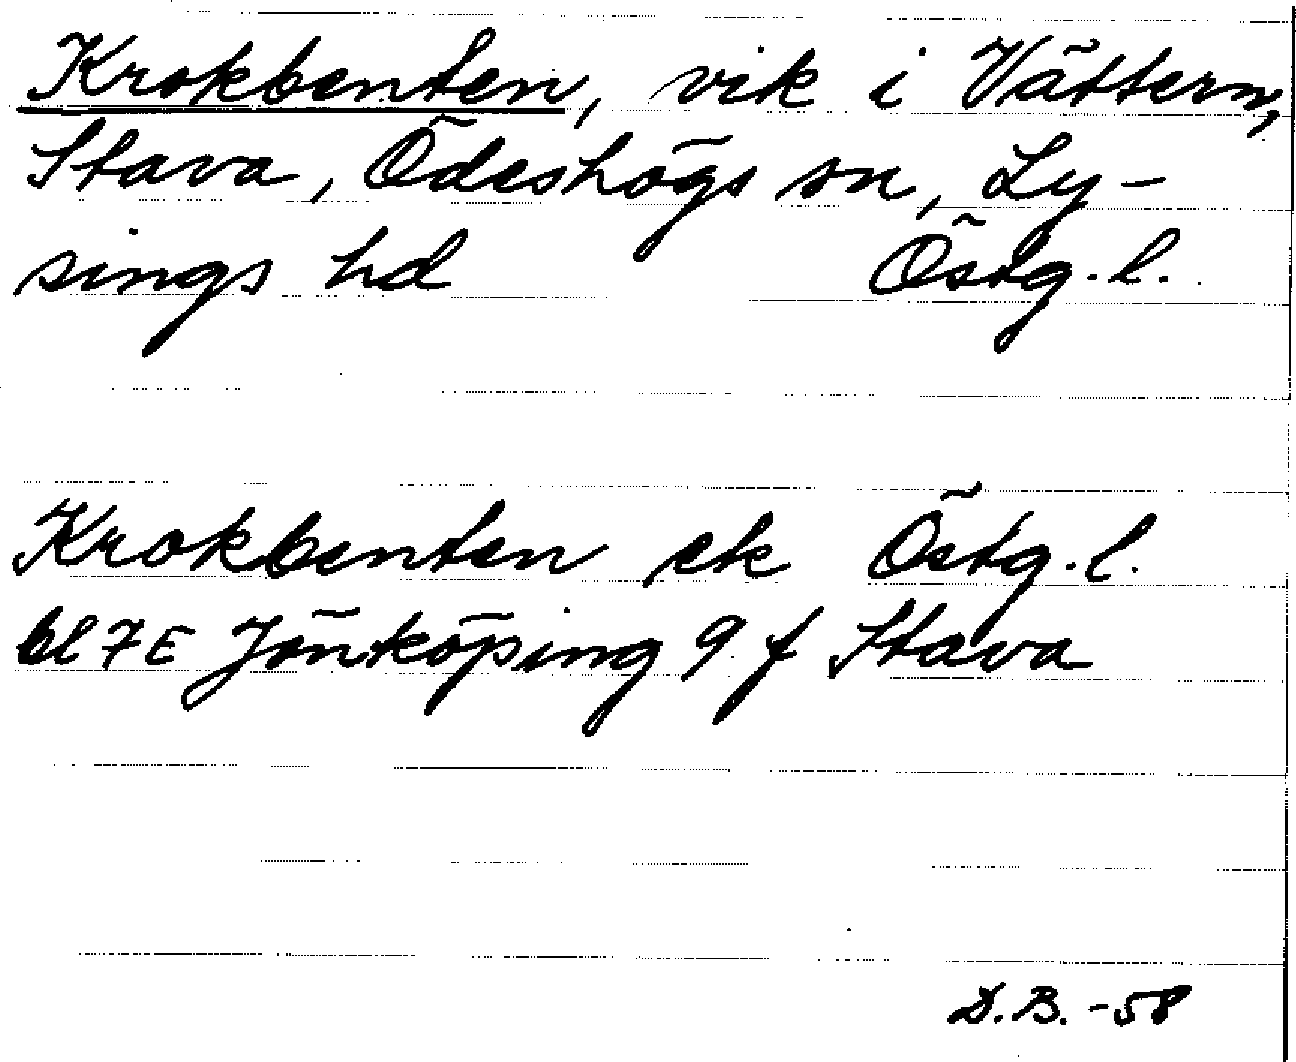 Krokbenten, vik i Vättern,
Stava, Ödeshögs sn, Ly-
sings hd Östg.l.
Krokbenten ek Östg.l.
bl 7E Jönköping 9 f Stava
D.B. -58